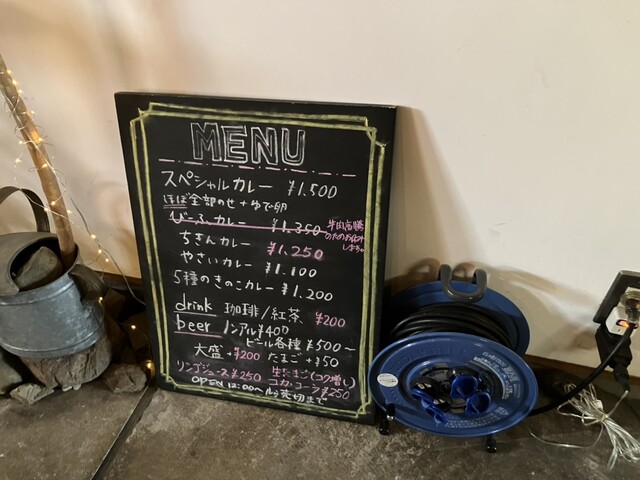 MENU
スペシャルカレー ¥1.500
ほぼ全部のせ+ゆで卵
びーふカレー ¥1.350
牛肉高騰
のためお休み
しまちゅ
ちきんカレー ¥1.250
やさいカレー ¥1.100
5種のきのこカレー ¥1.200
drink 珈琲/紅茶 ¥200
beer ノンアル¥400
ビール各種 ¥500〜
大盛+¥200 たまご+¥50
リンゴジュース¥250 生たまご(コク増し)
コカ・コーラ¥250
OPEN 12:00〜 売切まで